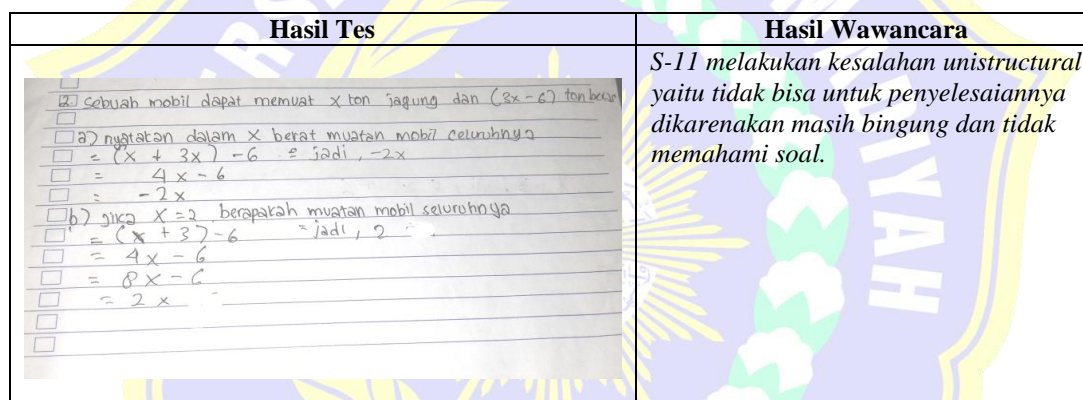 Hasil Tes
Hasil Wawancara
2. Sebuah mobil dapat memuat x ton jagung dan (3x - 6) ton beras
a) nyatakan dalam x berat muatan mobil seluruhnya
= (x + 3x) - 6 = jadi, -2x
= 4x - 6
= - 2x
b) jika x = 2 berapakah muatan mobil seluruhnya
= (x + 3) - 6 = jadi, 2
= 4x - 6
= 8x - 6
= 2x
S-11 melakukan kesalahan unistructural
yaitu tidak bisa untuk penyelesaiannya
dikarenakan masih bingung dan tidak
memahami soal.